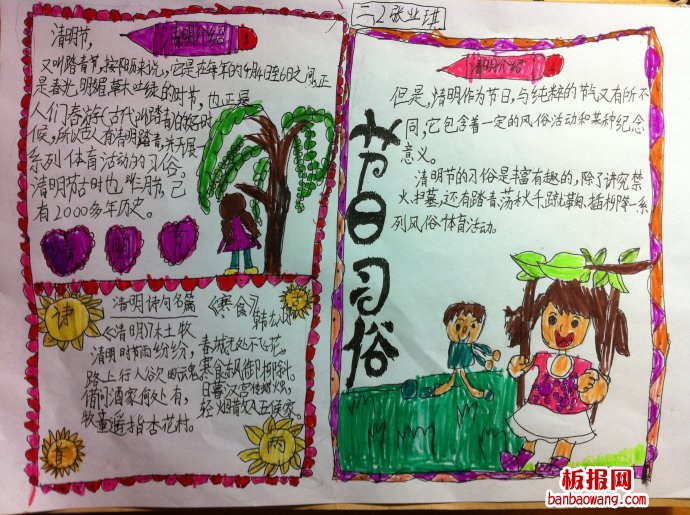 二2张业琪
清明介绍
清明节,
又叫踏青节,按阳历来说,它是在每年的4月4日至6日之间,正
是春光明媚草木吐绿的时节,也正是
人们春游(古代叫踏青)的好时
候,所以古人有清明踏青,并开展
系列体育活动的习俗。
清明节古时也叫三月节,已
有2000多年历史。
清明节
清明诗句名篇
《清明》杜牧
清明时节雨纷纷,
路上行人欲断魂
借问酒家何处有,
牧童遥指杏花村。
《寒食》
韩
春城无处不飞花。
寒食东风御柳斜。
日暮汉宫传蜡火,
轻烟散入五侯家。
诗
首
两
清明介绍
但是,清明作为节日,与纯粹的节气又有所不
同,它包含着一定的风俗活动和某种纪念
意义。
清明节的习俗是丰富有趣的,除了讲究禁
火,扫墓,还有踏青,荡秋千,蹴鞠,插柳等一系
列风俗体育活动。
节日习俗
板报网
banbaowang.com